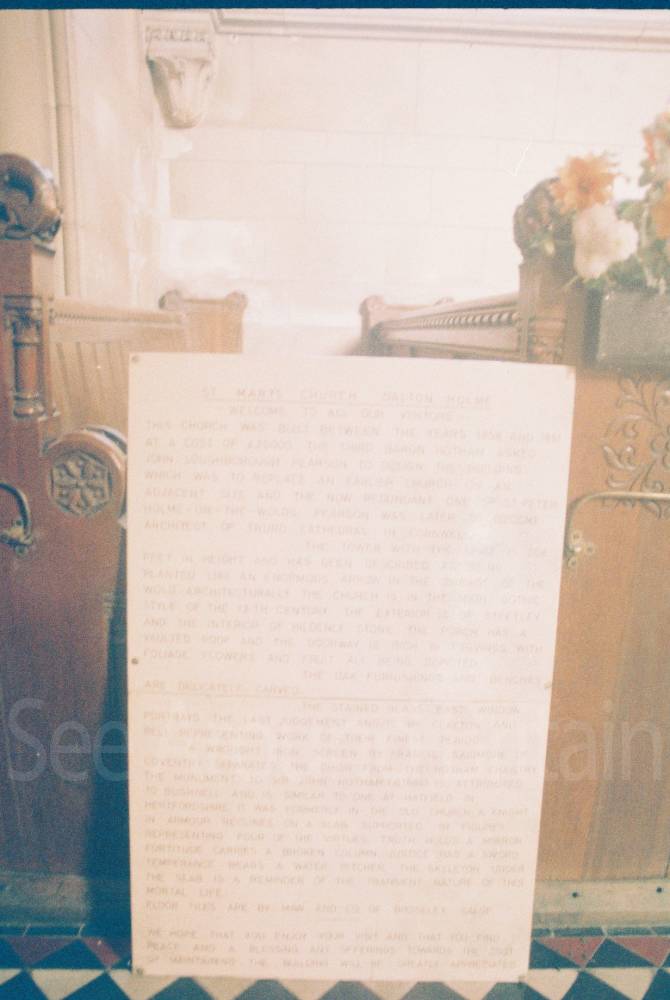 ST. MARYS CHURCH DALTON HOLME
WELCOME TO ALL OUR VISITORS
THIS CHURCH WAS BUILT BETWEEN THE YEARS 1858 AND 1861
AT A COST OF £25000. THE THIRD BARON HOTHAM ASKED
JOHN LOUGHBOROUGH PEARSON TO DESIGN THIS BUILDING
WHICH WAS TO REPLACE AN EARLIER CHURCH ON AN
ADJACENT SITE AND THE NOW REDUNDANT ONE OF ST PETER
HOLME-ON-THE-WOLDS. PEARSON WAS LATER TO BECOME
ARCHITECT OF TRURO CATHEDRAL IN CORNWALL
THE TOWER WITH THE SPIRE IS
FEET IN HEIGHT AND HAS BEEN DESCRIBED AS BEING
PLANTED LIKE AN ENORMOUS ARROW IN THE OF THE
WOLD. ARCHITECTURALLY THE CHURCH IS IN THE GOTHIC
STYLE OF THE 13TH CENTURY. THE EXTERIOR IS OF STEETLEY
AND THE INTERIOR OF HILDENLY STONE. THE PORCH HAS A
VAULTED ROOF AND THE DOORWAY IS RICH IN CARVINGS WITH
FOLIAGE FLOWERS AND FRUIT ALL BEING DEPICTED
THE OAK FURNISHINGS AND BENCHES
ARE DELICATELY CARVED.
THE STAINED GLASS EAST WINDOW
PORTRAYS THE LAST JUDGEMENT AND IS BY CLAYTON AND
BELL REPRESENTING WORK OF THEIR FINEST PERIOD
A WROUGHT IRON SCREEN BY FRANCIS SKIDMORE OF
COVENTRY SEPARATES THE CHOIR FROM THE HOTHAM CHANTRY
THE MONUMENT TO SIR JOHN HOTHAM IS ATTRIBUTED
TO BUSHNELL AND IS SIMILAR TO ONE AT HATFIELD IN
HERTFORDSHIRE. IT WAS FORMERLY IN THE OLD CHURCH. A KNIGHT
IN ARMOUR RECLINES ON A SLAB SUPPORTED BY FIGURES
REPRESENTING FOUR OF THE VIRTUES. TRUTH HOLDS A MIRROR
FORTITUDE CARRIES A BROKEN COLUMN JUSTICE HAS A SWORD
TEMPERANCE BEARS A WATER PITCHER. THE SKELETON UNDER
THE SLAB IS A REMINDER OF THE TRANSIENT NATURE OF THIS
MORTAL LIFE.
FLOOR TILES ARE BY MAW AND CO OF BROSELEY SALOP
WE HOPE THAT YOU ENJOY YOUR VISIT AND THAT YOU FIND
PEACE AND A BLESSING. ANY OFFERINGS TOWARDS THE COST
OF MAINTAINING THE BUILDING WILL BE GREATLY APPRECIATED
See